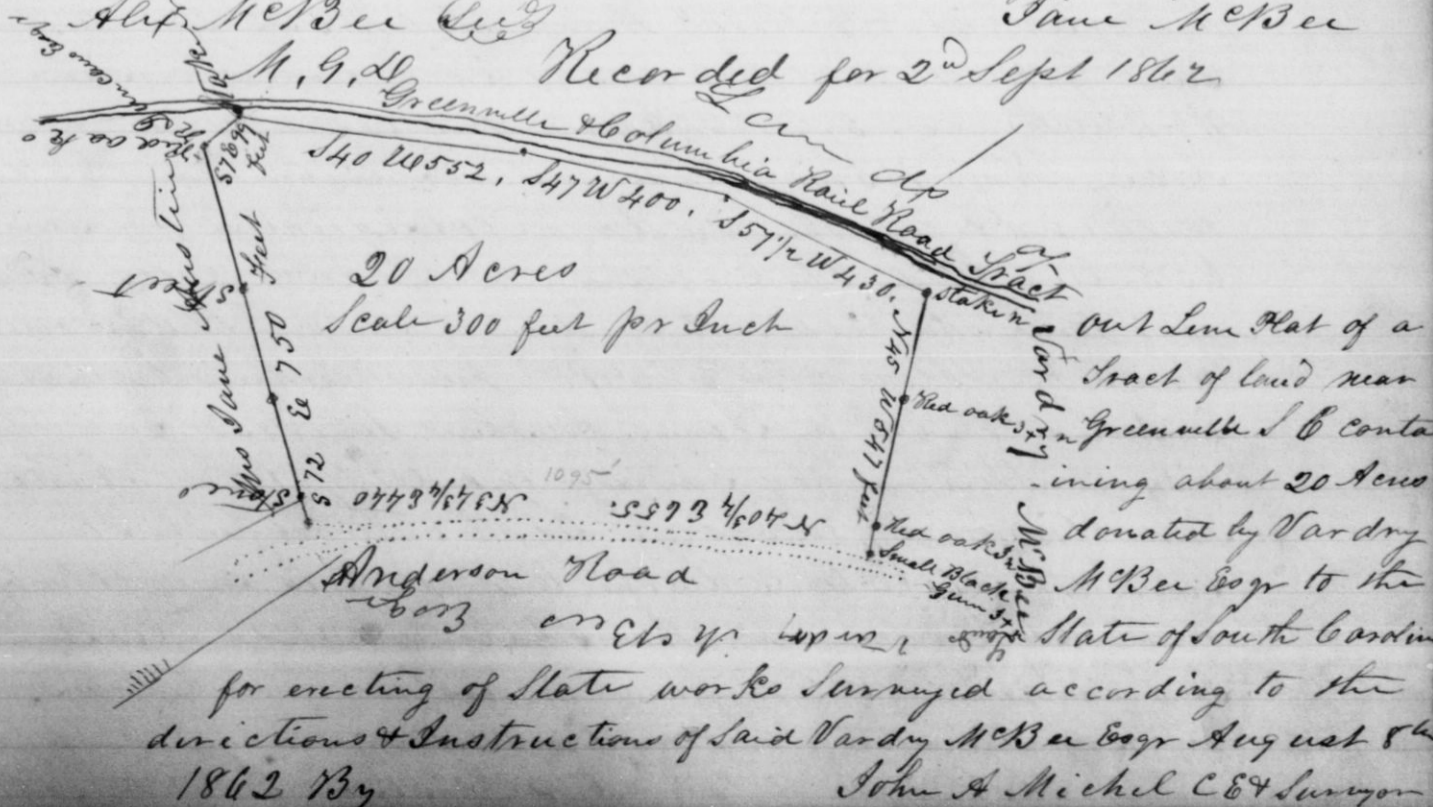 Alex McBee
Jane McBee
M. G. D
Recorded for 2nd Sept 1862
Greenville & Columbia Rail Road Tract
Land of
S 40 W 552. S 47 W 400. S 57 1/2 W 430.
Stake
feet
20 Acres
Scale 300 feet pr Inch
Mrs Jane Street
S 72 E 750 feet
Stone
N 45 W 547 feet
Stake
Red oak 3x
Red oak 3x
Small Black
Gum 3x
Stone
N 37 3/4 E 440
1095
N 40 3/4 E 655
Anderson Road
Vardry McBee Esqr
Vardry McBee
Out Line Plat of a
Tract of land near
Greenville S C conta
ining about 20 Acres
donated by Vardry
McBee Esqr to the
State of South Carolin
for erecting of State works Surveyed according to the
directions & Instructions of Said Vardry McBee Esqr August 8th
1862 By
John A Michel C E & Surveyor